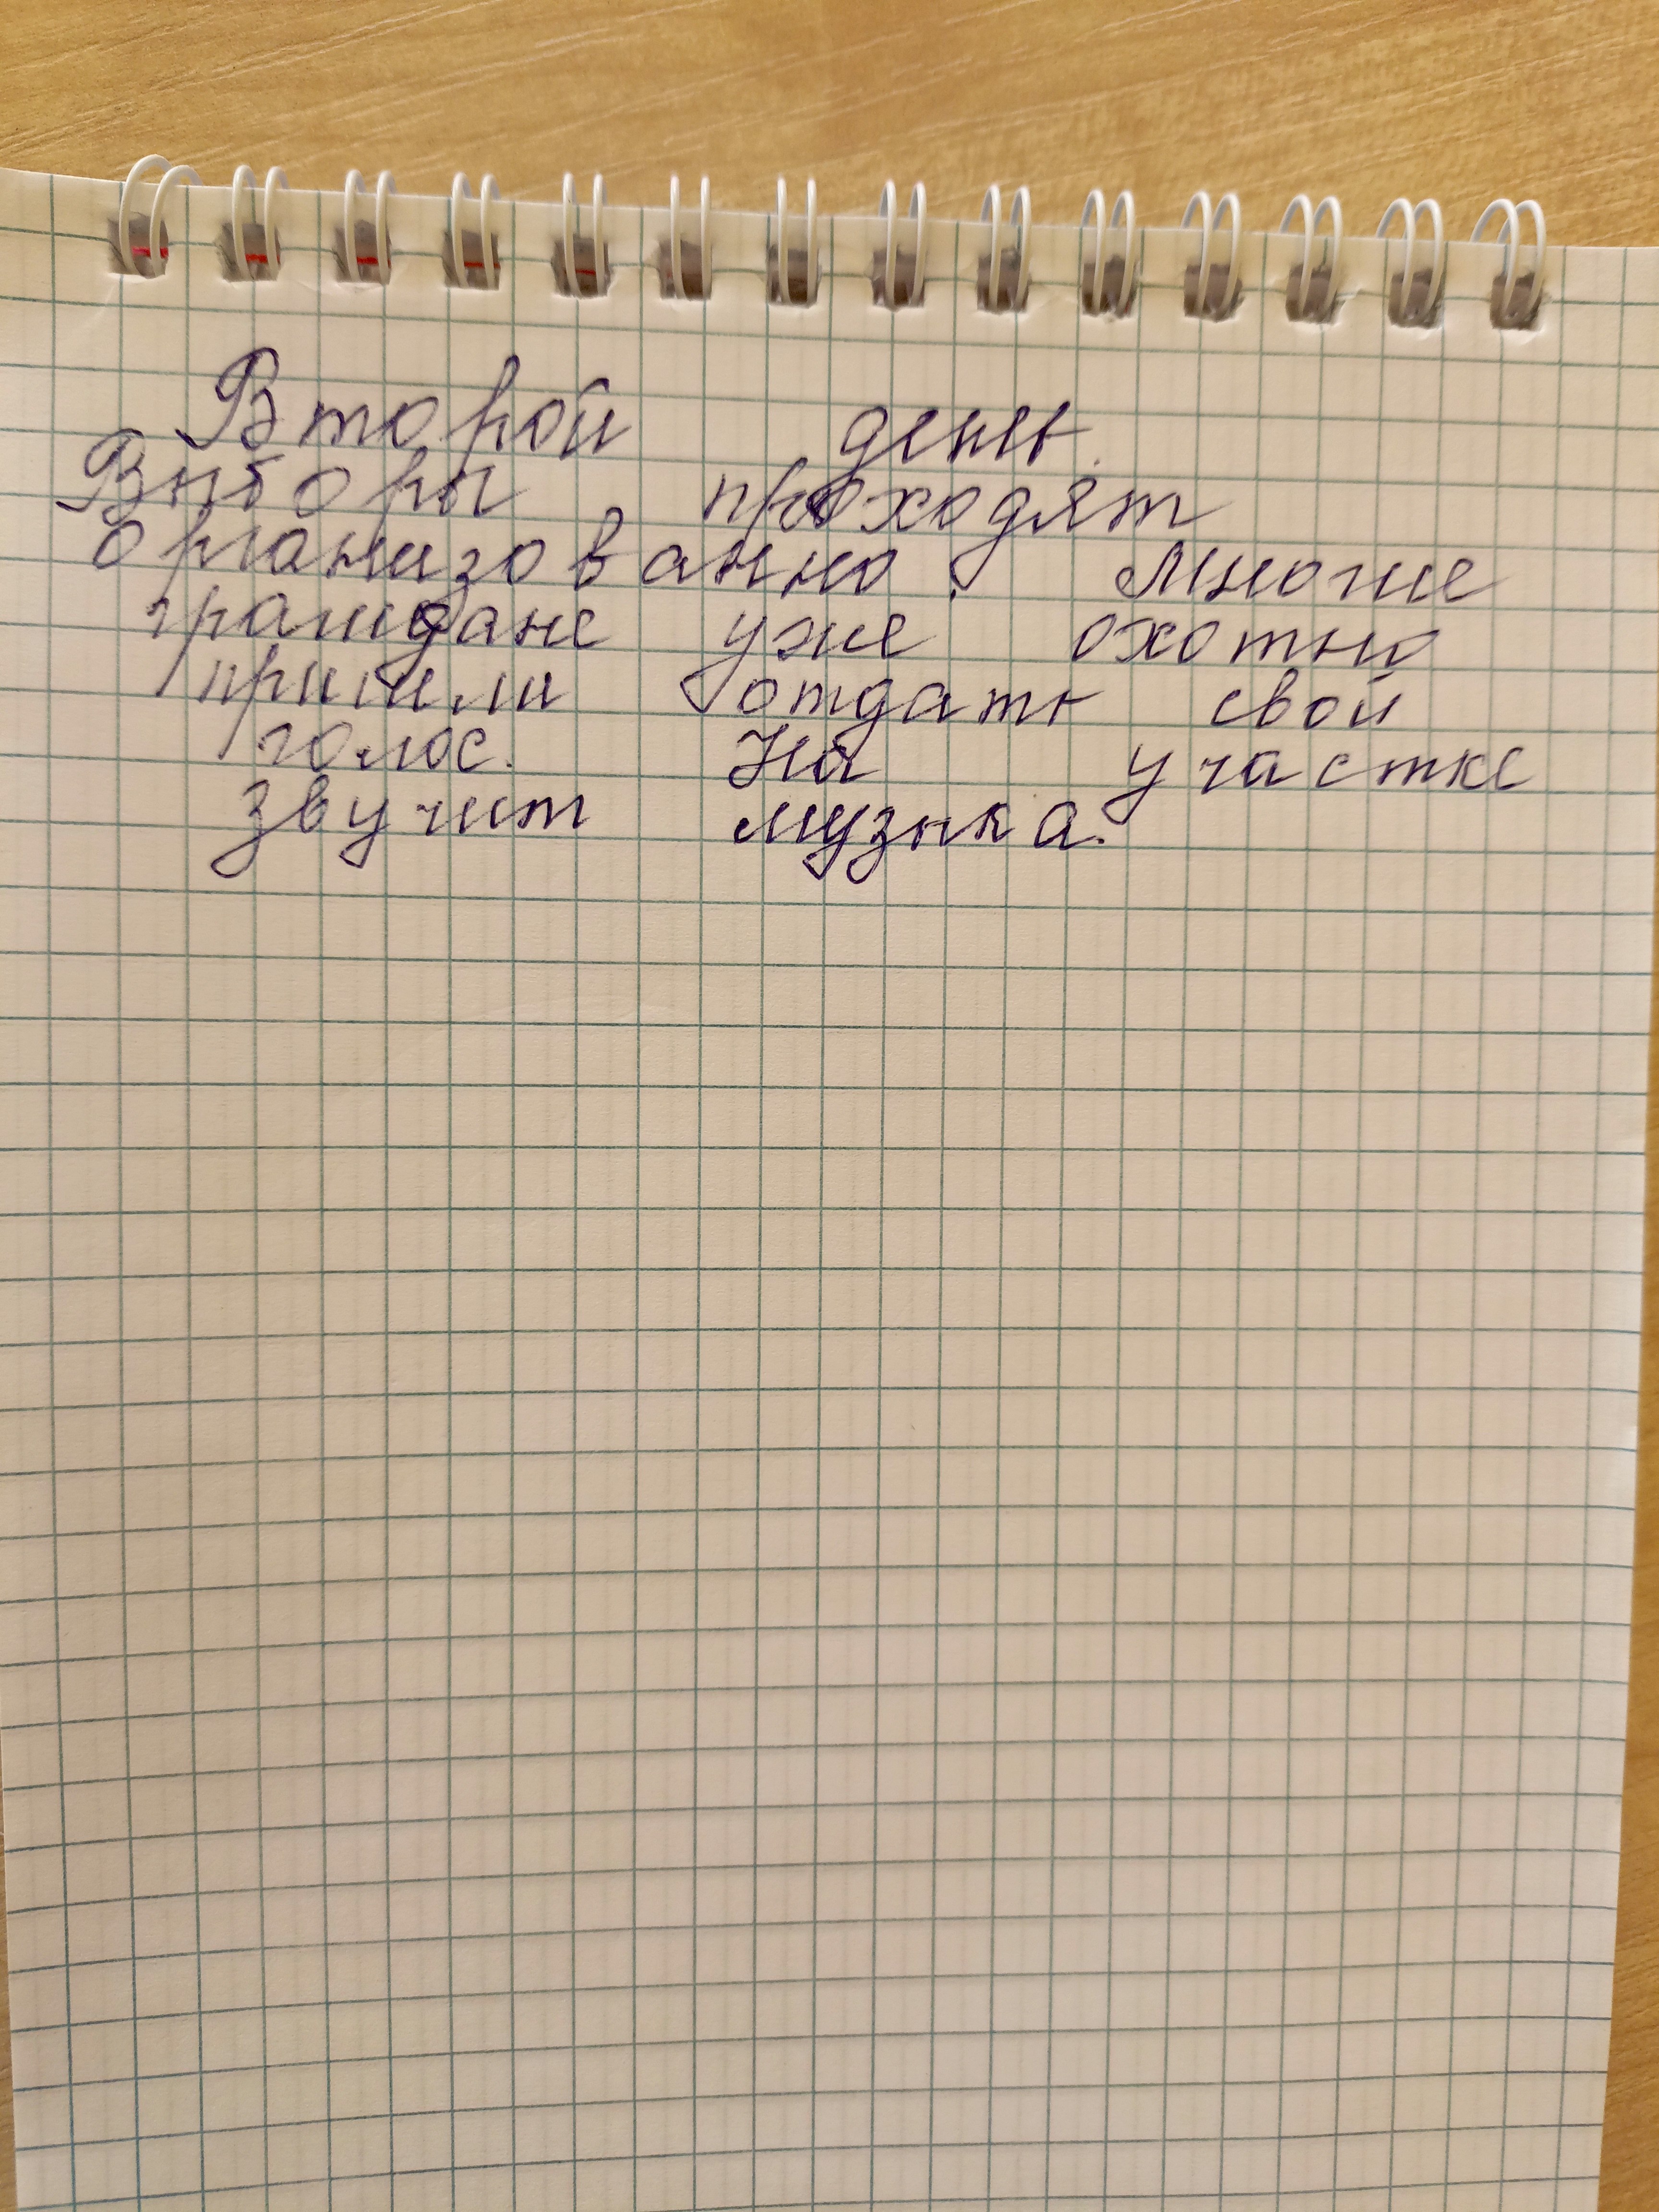 Второй день.
Выборы проходят
организованно. Многие
граждане уже охотно
пришли отдать свой
голос. На участке
звучит музыка.